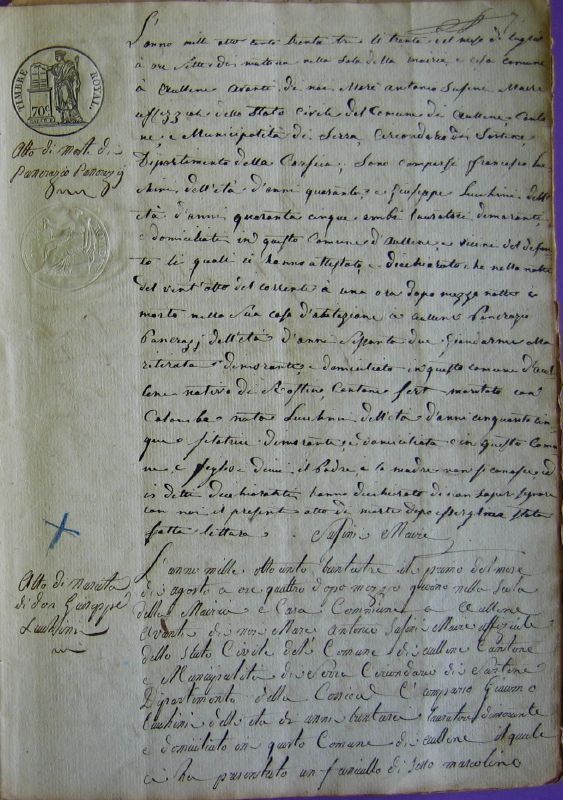 TIMBRE ROYAL
70 c
Atto di morte di
Pancrazio Pancrazj
L'anno mille otto cento trenta tre li trenta del mese di luglio
à ore sette di matina nella Sala della mairia, e casa comune
à Aullene avante di noi Marc Antonio Susini Maire
uffizziale dello Stato Civile del Comune di Aullene, Canto
ne, e Municipalità di Serra, Circondario di Sartene,
Dipartimento della Corsica, Sono comparsi Francesco
dell'età d'anni quaranta, e Giuseppe Lucchini dell'e
tà d'anni quaranta cinque ambi lavoratori dimoranti,
e domiciliati in questo Comune d'Aullene, e vicini del defun
to li quali ci hanno attestato, e dichiarato che nella notte
del vent'otto del corrente à una ora dopo mezza notte è
morto nella Sua casa d'abitazione à Aullene Pancrazio
Pancrazj dell'età d'anni Sessanta due, Giandarme
ritirato dimorante, e domiciliato in questo comune d'Aul
lene nativo di Rostino, Cantone maritato con
Colomba nata Lucchini dell'età d'anni cinquanta cin
que filatrice dimorante, e domiciliata in questo Comu
ne, e figlio di il Padre, e la madre non si conosce ed
i detti dichiaranti hanno dichiarato di non saper signare
con noi il presente atto di morte dopo essergliene stata
fatta lettura. Susini Maire
Atto di nascita
di don Giuseppe
Lucchini
L'anno mille otto cento trentatre il primo del mese
di agosto a ore quattro dopo mezzo giorno nella sala
della Mairia e Casa Commune a Aullene
Avanti di noi Marc Antonio Susini Maire uffiziale
dello stato Civile del Comune di Aullene Cantone
e Municipalità di Serra Circondario di Sartene
Dipartimento della Corsica è comparso Giacomo
Lucchini dell'età di anni trenta lavoratore dimorante
e domiciliato in questo Comune di Aullene il quale
ci ha presentato un fanciullo di sesso mascolino